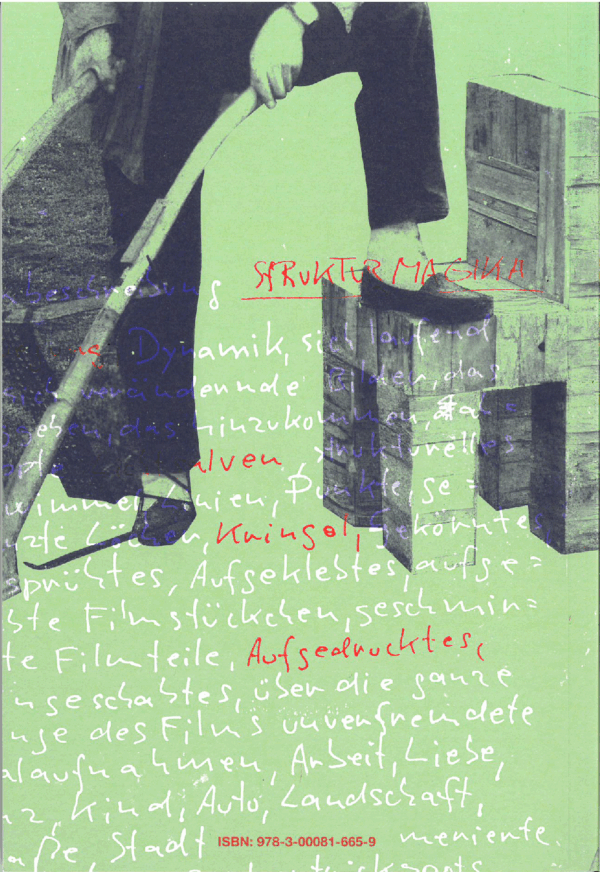 STRUKTUR MAGIKA
ng Dynamik, sich laufend
verändernde Bilder, das
gehen, das hinzukommen,
alven, strukturelles
Linien, Punkte, ge=
nzte Löcher, Kringel, Gekörntes,
sprühtes, Aufgeklebtes, aufge=
bte Filmstückchen, geschmin=
te Filmteile, Aufgedrucktes,
ngeschabtes, über die ganze
nge des Films unverfremdete
alaufnahmen, Arbeit, Liebe,
nz, Kind, Auto, Landschaft,
aße, Stadt meniente.
ISBN: 978-3-00081-665-9